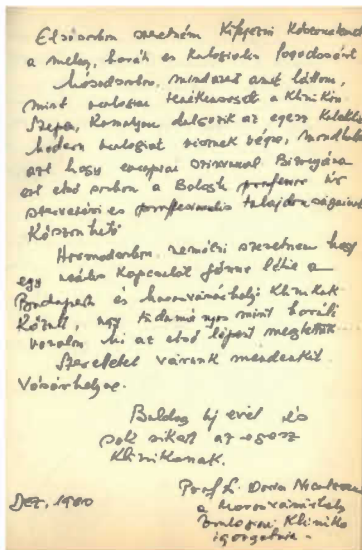 Elsősorban szeretném kifejezni köszönetemet
a meleg, baráti és kollegiális fogadásért
Másodsorban, mindazt amit láttam,
mint urologiai tevékenységet a Klinikán
Szépen, komolyan dolgozik az egész
modern urologiát visznek végre,
azt hogy europai szinvonal Bizonyára
ezt első sorban a Balogh professor úr
szervezési es professionalis tulajdonságainak
köszönhető
Harmadsorban remélni szeretném hogy
egy reális kapcsolat jönne létre a
Budapesti és marosvásárhelyi Klinikák
között, úgy tudományos mint baráti
vonalon mi az első lépést megtettük
Szeretettel várunk mindenkit
Vásárhelyre.
Boldog új évet és
sok sikert az egész
Klinikának.
Prof. Dr. Doria
a Marosvásárhely
Urologiai Klinika
igazgatója.
Dec, 1980